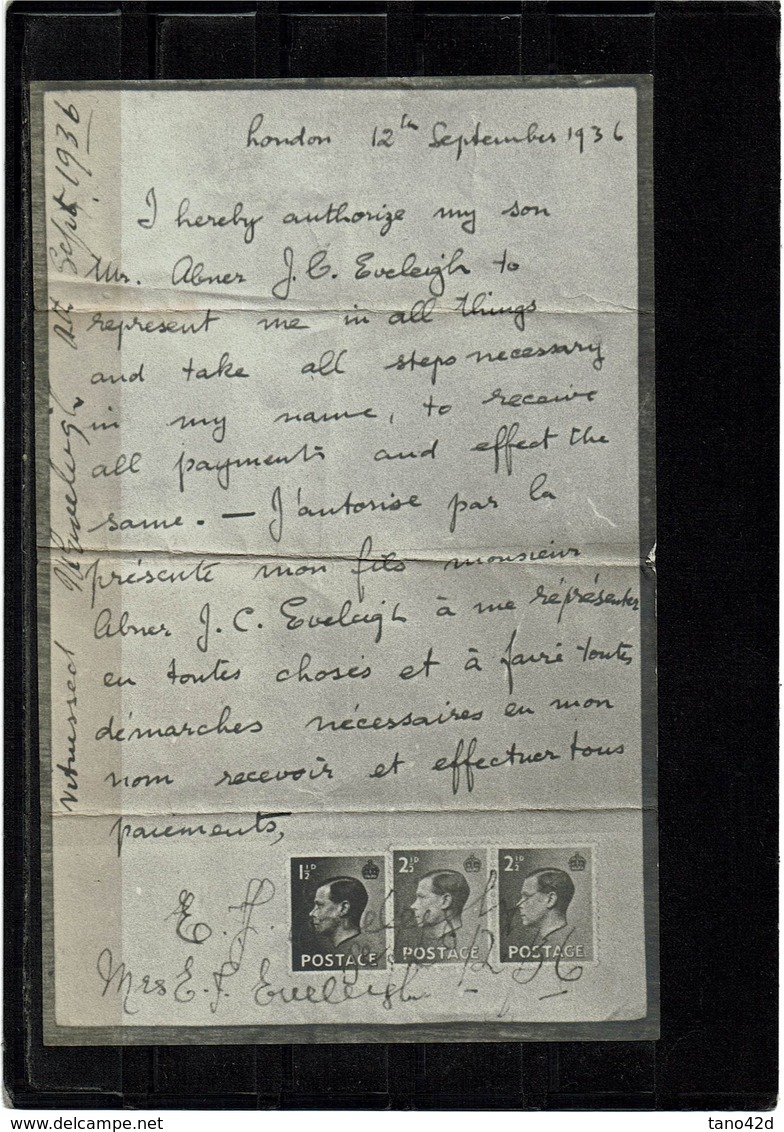 London 12th September 1936
I hereby authorize my son
Mr. Abner J. C. Eveleigh to
represent me in all things
and take all steps necessary
in my name, to receive
all payments and effect the
same. — J'autorise par la
présente mon fils monsieur
Abner J. C. Eveleigh à me réprésenter
en toutes choses et à faire toutes
démarches nécessaires en mon
nom recevoir et effectuer tous
paiements,
E. J. Eveleigh
Mrs E. J. Eveleigh
witnessed Eveleigh Sept 1936
1½D POSTAGE
2½D POSTAGE
2½D POSTAGE
delcampe.net
tano42d